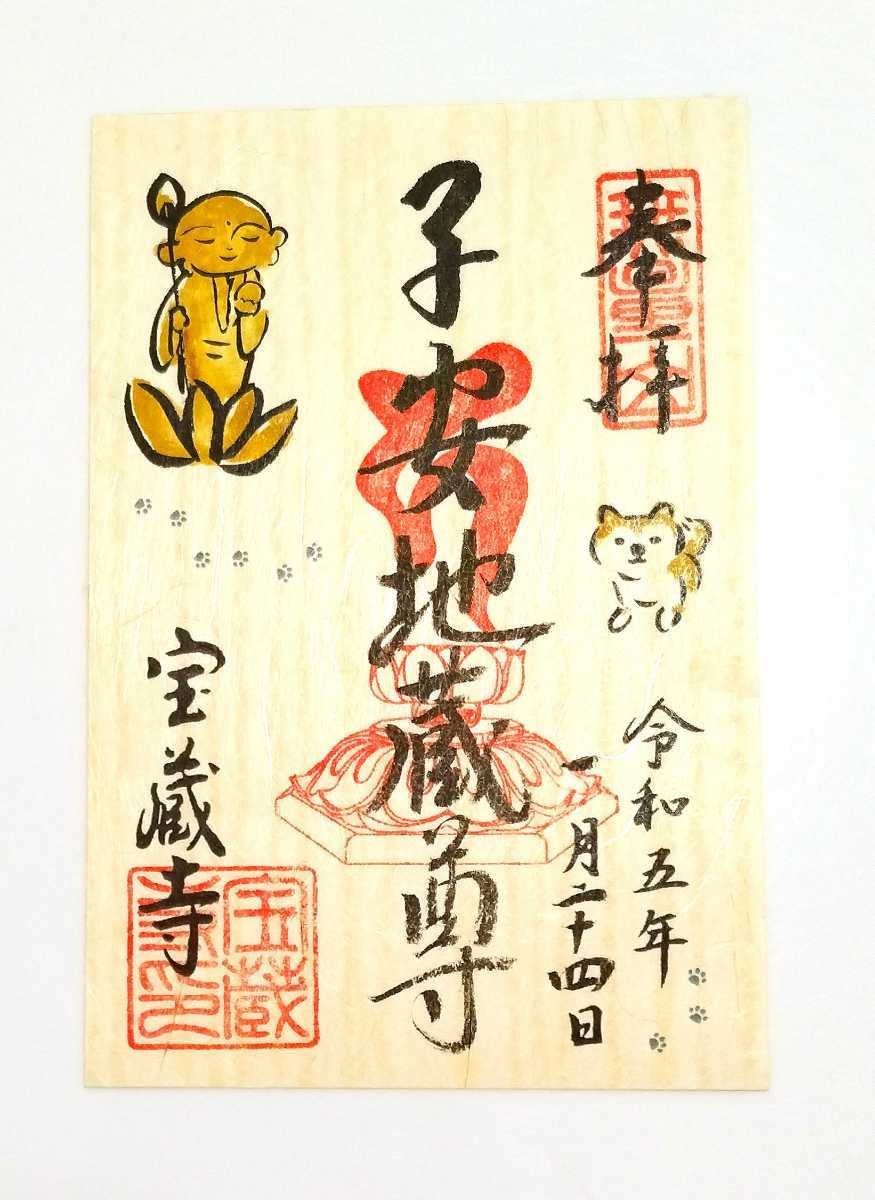 奉拝
令和五年
一月二十四日
子安地蔵尊
宝蔵寺
宝蔵